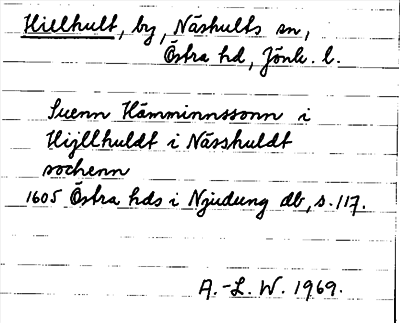 Hiellhult, by, Näshults sn,
Östra hd, Jönk. l.
Suenn Hämminnssonn i
Hijllhuldt i Nässhuldt
sochenn
1605 Östra hds i Njudung db, s. 117.
A.-L. W. 1969.